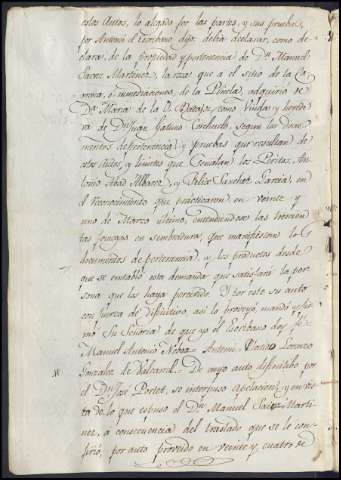 estos Autos, lo alegado por las partes, y sus pruebas,
por Antemi el Escribano dijo: debía declarar, como de
clara, de la propiedad y pertenencia de Dn. Manuel
Saenz Martinez, la roza que a el sitio de la Co
rona, o inmediaciones de la Pinela, adquirió de
Da. Maria de la O Barajas, como Viuda y herede
ra de Dn. Juan Gatino, segun los docu
mentos de pertenencia y pruebas que resultan de
estos Autos, y limites que señalan los Peritos, An
tonio Abad Albarez, y Felix Sanchez Garcia, en
el reconocimiento que practicaron en veinte y
uno de Marzo ultimo, entendiendose las trecien
tas fanegas en sembradura, que manifiestan los
documentos de pertenencia, y los productos desde
que se entabló esta demanda que satisfará la per
sona que los haya percivido. Y por este su auto
con fuerza de difinitivo, así lo proveyó, mandó y fir
mó Su Señoria de que yo el Escribano doy fé.
Manuel Antonio Antemi Lorenzo
Gonzalez de Valcarcel. De cuyo auto difinitibo por
el Dn. Jose Portet, se interpuso apelacion, y en vis
ta de lo que expuso el Dn. Manuel Saez Marti
nez, a consecuencia del traslado que se le con
firió, por auto proveido en veinte y cuatro de